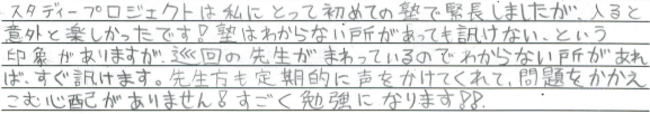 スタディープロジェクトは私にとって初めての塾で緊張しましたが、入ると
意外と楽しかったです!塾はわからない所があっても訊けない、という
印象がありますが、巡回の先生がまわっているのでわからない所があれ
ば、すぐ訊けます。先生方も定期的に声をかけてくれて、問題をかかえ
こむ心配がありません!すごく勉強になります!!.